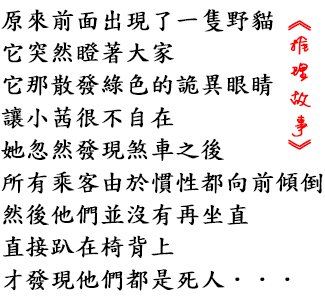 原來前面出現了一隻野貓
它突然瞪著大家
它那散發綠色的詭異眼睛
讓小茜很不自在
她忽然發現煞車之後
所有乘客由於慣性都向前傾倒
然後他們並沒有再坐直
直接趴在椅背上
才發現他們都是死人···
《推理故事》